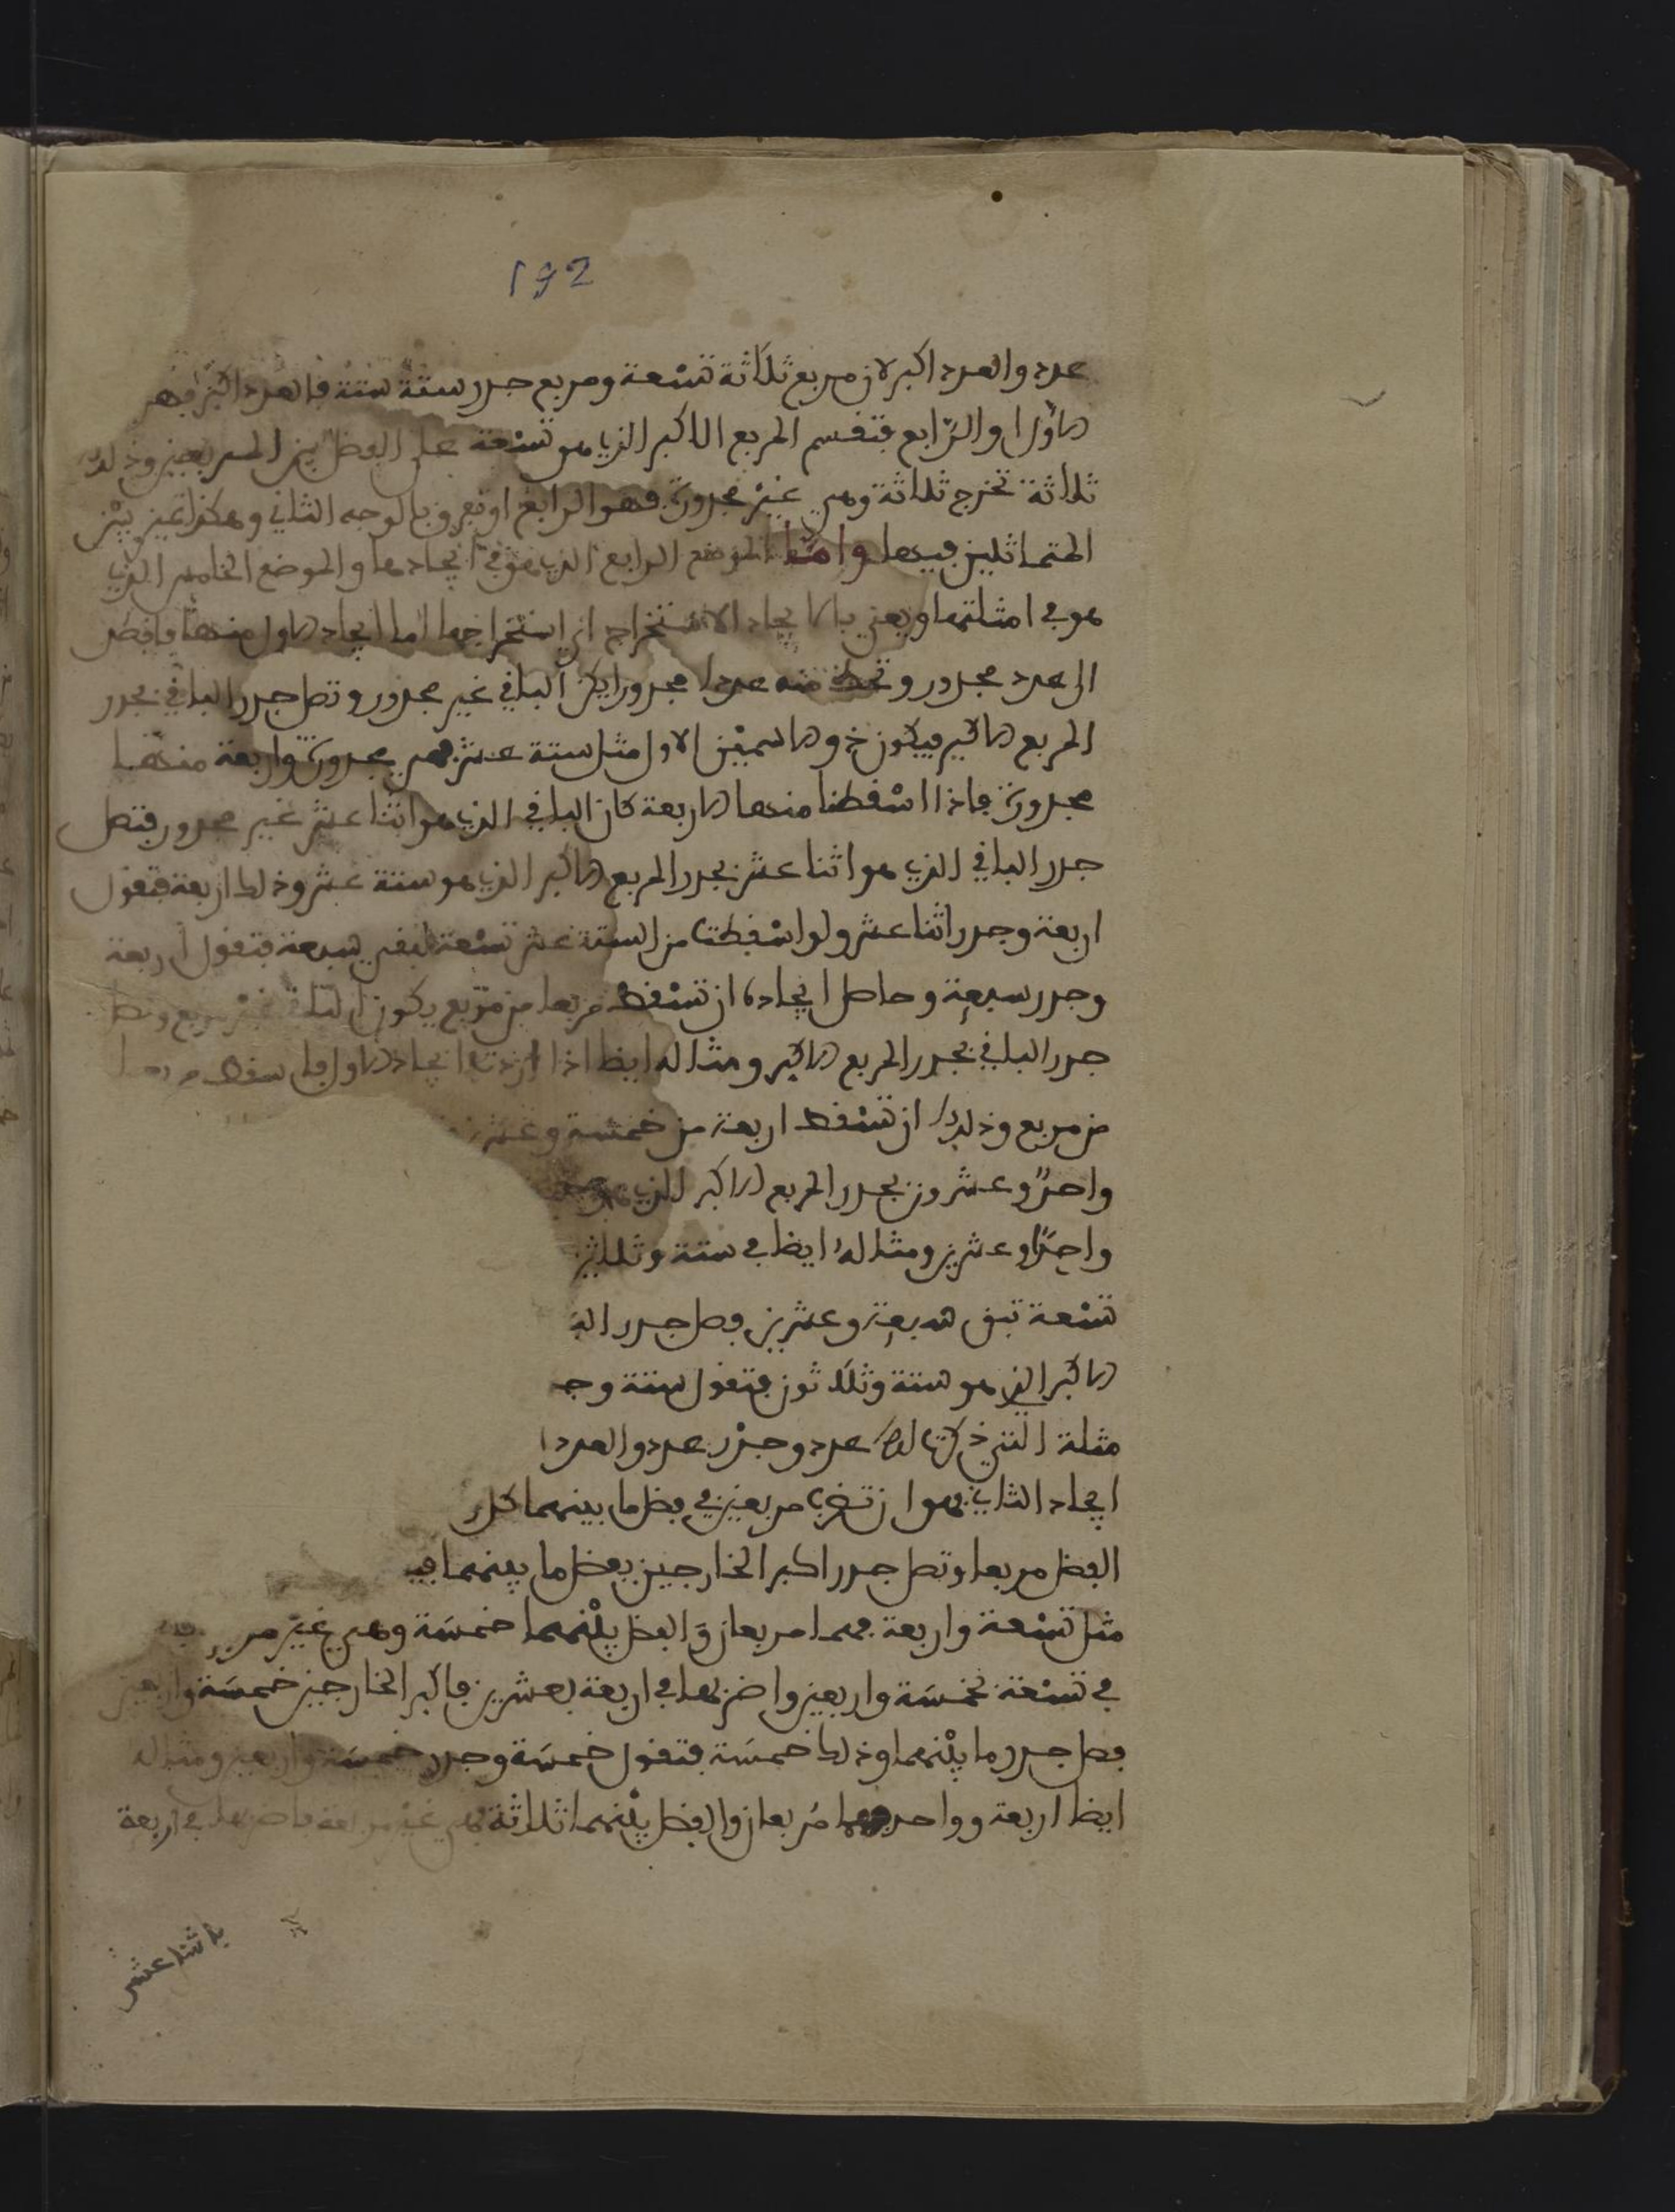 192
عدد والعدد اكبر لان مربع ثلاثة تسعة ومربع جدر ستة ستة فالعدد اكبر فهو
الاول او الرابع فتقسم المربع الاكبر الذي هو تسعة على الفضل بين المربعين وذلك
ثلاثة تخرج ثلاثة وهي غير مجدورة فهو الرابع او تعرف بالوجه الثاني وهكذا تميز بين
المتماثلين فيها وامّا الموضع الرابع الذي هو في ايجادها والموضع الخامس الذي
هو في امثلتها ويعني بالايجاد الاستخراج اي استخراجها اما ايجاد الاول منها فاقصد
الى عدد مجدور وتحط منه عددا مجدورا يكن الباقي غير مجذور وتصل جدر الباقي بجدر
المربع الاكبر فيكون ذو الاسمين الاول مثل ستة عشر فهي مجدورة واربعة منها
مجدورة فاذا اسقطنا منها الاربعة كان الباقي الذي هو اثنا عشر غير مجدور فتصل
جدر الباقي الذي هو اثنا عشر بجدر المربع الاكبر الذي هو ستة عشر وذلك اربعة فتقول
اربعة وجدر اثنا عشر ولو اسقطت من الستة عشر تسعة لبقي سبعة فتقول اربعة
وجدر سبعة وحاصل ايجاده ان تسقط مربعا من مربع يكون الباقي غير مربع وتصل
جدر الباقي بجدر المربع الاكبر ومثاله ايضا اذا اردت ايجاد الاول فاسقط مربعا
من مربع وذلك ان تسقط اربعة من خمسة وعشرين
واحد وعشرون بجدر المربع الاكبر الذي هو
واحدا وعشرين ومثاله ايضا في ستة وثلاثين
تسعة تبق سبعة وعشرين فصل جدر
الاكبر الذي هو ستة وثلاثون فتقول ستة
مثلة التي ذكرت لك عدد وجذر عدد والعدد
ايجاد الثاني فهو ان تضرب مربعين في فضل ما بينهما
الفضل مربعا وتصل جدر اكبر الخارجين بفضل ما بينهما
مثل تسعة واربعة فهما مربعان والفضل بينهما خمسة وهي غير
في تسعة بخمسة واربعين واضربها في اربعة بعشرين فاكبر الخارجين خمسة واربعين
فصل جدره ما بينهما وذلك خمسة فتقول خمسة وجدر خمسة واربعين ومثاله
ايضا اربعة وواحد فهما مربعان والفضل بينهما ثلاثة فهي غير مربعة فاضربها في اربعة
باثنا عشر